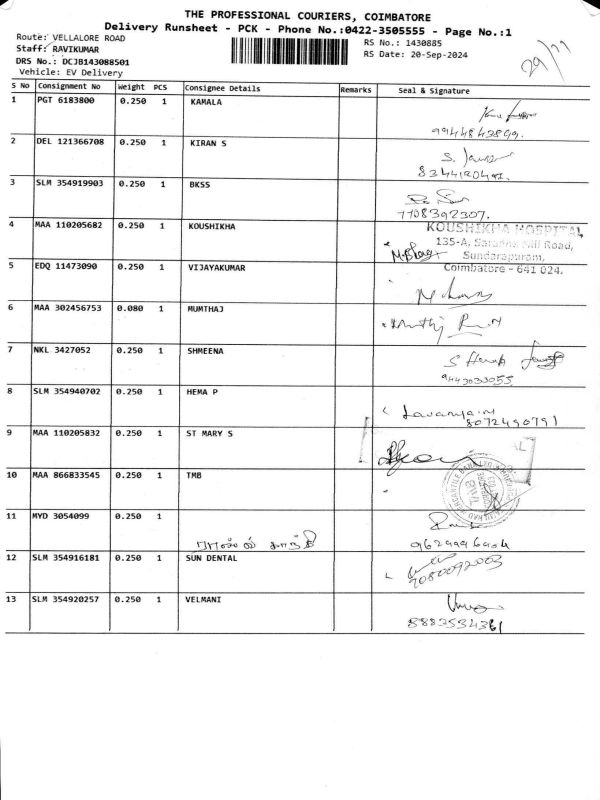 THE PROFESSIONAL COURIERS, COIMBATORE
Delivery Runsheet - PCK - Phone No.:0422-3505555 - Page No.:1
Route: VELLALORE ROAD
RS No.: 1430885
Staff: RAVIKUMAR
RS Date: 20-Sep-2024
DRS No.: DCJB143088501
Vehicle: EV Delivery
29/77
S No Consignment No Weight PCS Consignee Details Remarks Seal & Signature
1 PGT 6183800 0.250 1 KAMALA
9944843899.
2 DEL 121366708 0.250 1 KIRAN S
3 SLM 354919903 0.250 1 BKSS
7708392307.
4 MAA 110205682 0.250 1 KOUSHIKHA
KOUSHIKHA HOSPITAL
135-A, Saradha Mill Road,
Sundarapuram,
Coimbatore - 641 024.
5 EDQ 11473090 0.250 1 VIJAYAKUMAR
6 MAA 302456753 0.080 1 MUMTHAJ
7 NKL 3427052 0.250 1 SHMEENA
8 SLM 354940702 0.250 1 HEMA P
8072490791
9 MAA 110205832 0.250 1 ST MARY S
10 MAA 866833545 0.250 1 TMB
11 MYD 3054099 0.250 1
12 SLM 354916181 0.250 1 SUN DENTAL
7080092003
13 SLM 354920257 0.250 1 VELMANI
8883534361